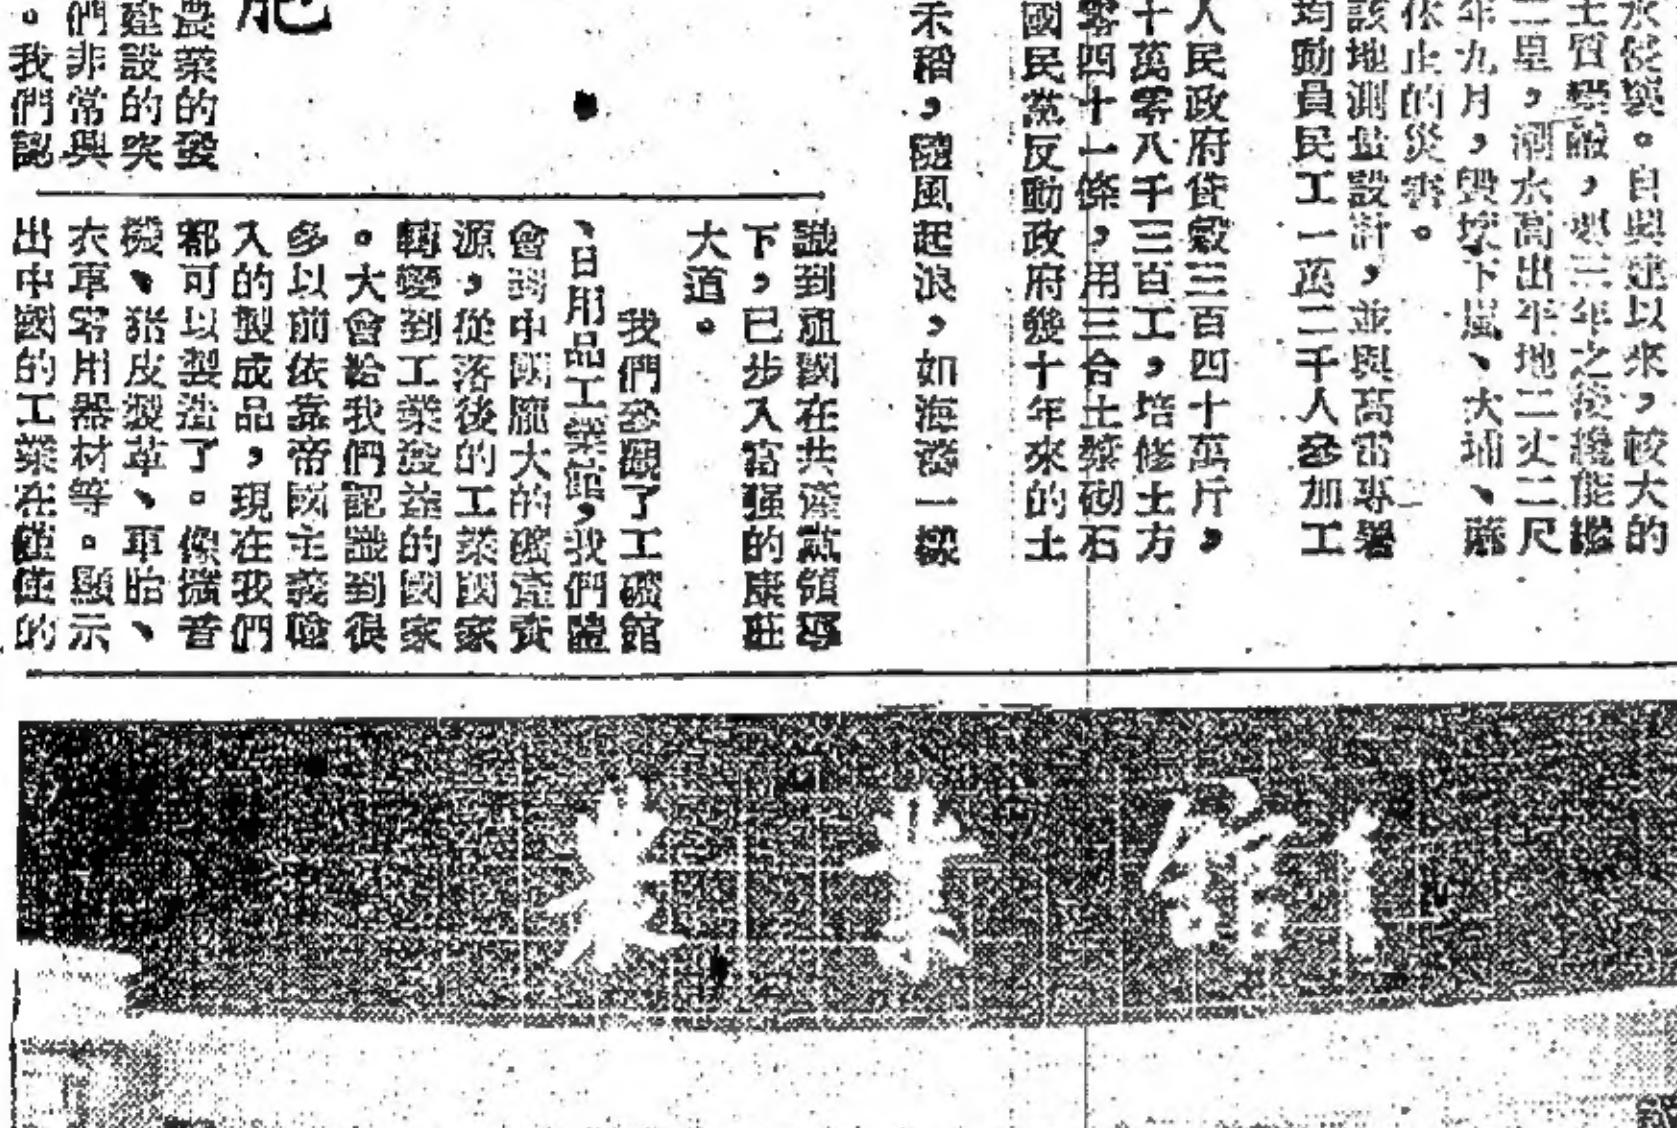 水侵襲。自興建以來,較大的
二里,潮水高出平地二丈二尺
年九月,
下嵐、大埔、
休止的災害。
該地測量設計,並與高雷專署
均動員民工一萬二千人參加工
人民政府貸穀三百四十萬斤,
十萬零八千三百工,培修土方
零四十一條,用三合土漿砌石
國民黨反動政府幾十年來的土
禾稻,隨風起浪,如海濤一樣
肥
農業的發
建設的突
們非常興
。我們認
識到祖國在共產黨領導
下,已步入富强的康莊
大道。
我們參觀了工礦館
、日用品工業館,我們體
會到中國龐大的礦產資
源,從落後的工業國家
轉變到工業後益的國家
。大會給我們認識到很
多以前依靠帝國主義輸
入的製成品,現在我們
都可以製造了。像擴音
機、猪皮製革、車胎、
衣車零用器材等。顯示
出中國的工業在僅僅的
農業館